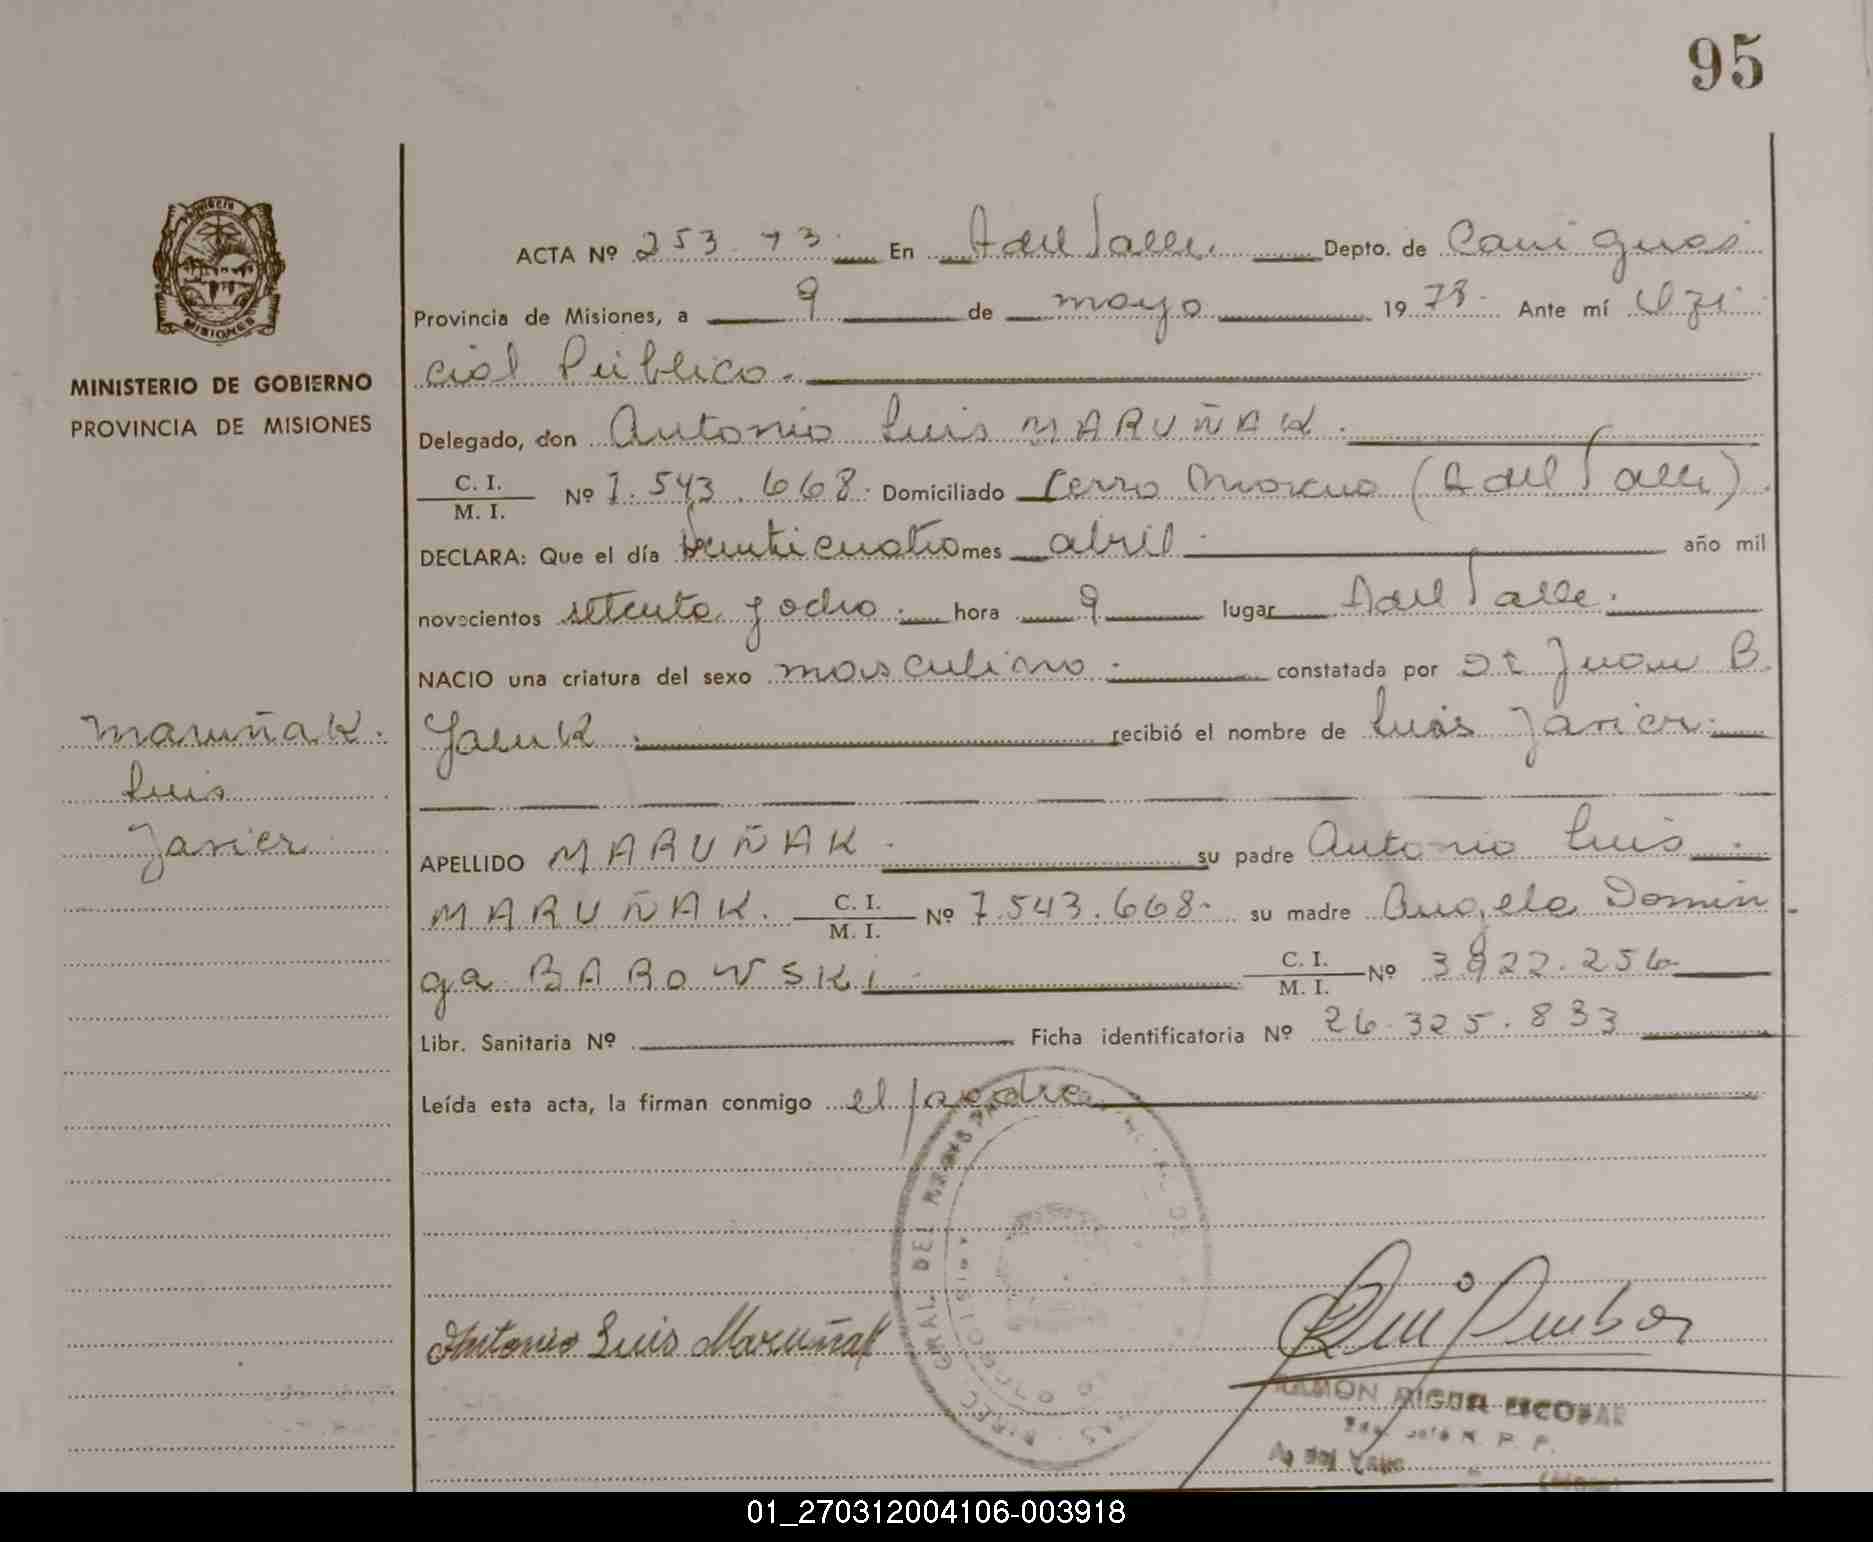 95
MISIONES
MINISTERIO DE GOBIERNO
PROVINCIA DE MISIONES
Maruñak.
Luis
Javier
ACTA Nº 253-73. En A del Valle. Depto. de Cainguas
Provincia de Misiones, a 9 de mayo 1978. Ante mí Ofi
cial Público.
Delegado, don Antonio Luis MARUÑAK.
C. I. / M. I. Nº 7.543.668. Domiciliado Cerro Moreno (A del Valle).
DECLARA: Que el día Veinticuatro mes abril. año mil
novecientos setenta y ocho. hora 9 lugar A del Valle.
NACIO una criatura del sexo masculino. constatada por Dr Juan B.
recibió el nombre de Luis Javier.
APELLIDO MARUÑAK. su padre Antonio Luis
MARUÑAK. C. I. / M. I. Nº 7.543.668. su madre Angela Domin
ga BAROWSKI C. I. / M. I. Nº 3922.256
Libr. Sanitaria Nº Ficha identificatoria Nº 26.325.833
Leída esta acta, la firman conmigo el padre
GRAL DEL
Antonio Luis Maruñak
RAMON MIGUEL ESCOBAR
01_270312004106-003918